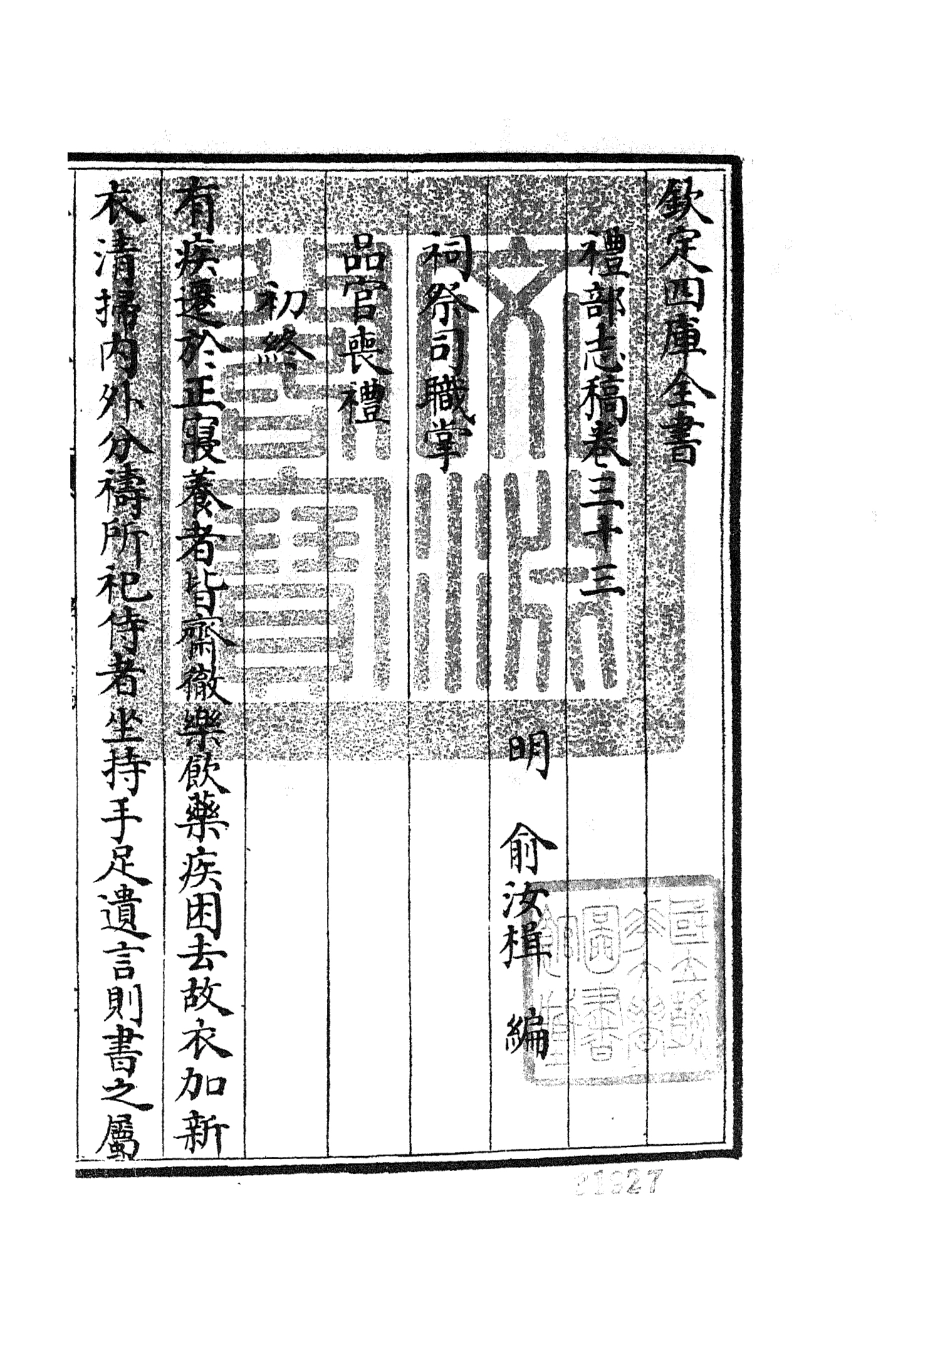 欽定四庫全書
禮部志稿卷三十三
明 俞汝楫 編
祠祭司職掌
品官喪禮
初終
有疾遷於正寢養者皆齋徹樂飲藥疾困去故衣加新
衣清掃内外分禱所祀侍者坐持手足遺言則書之屬
文淵閣寶